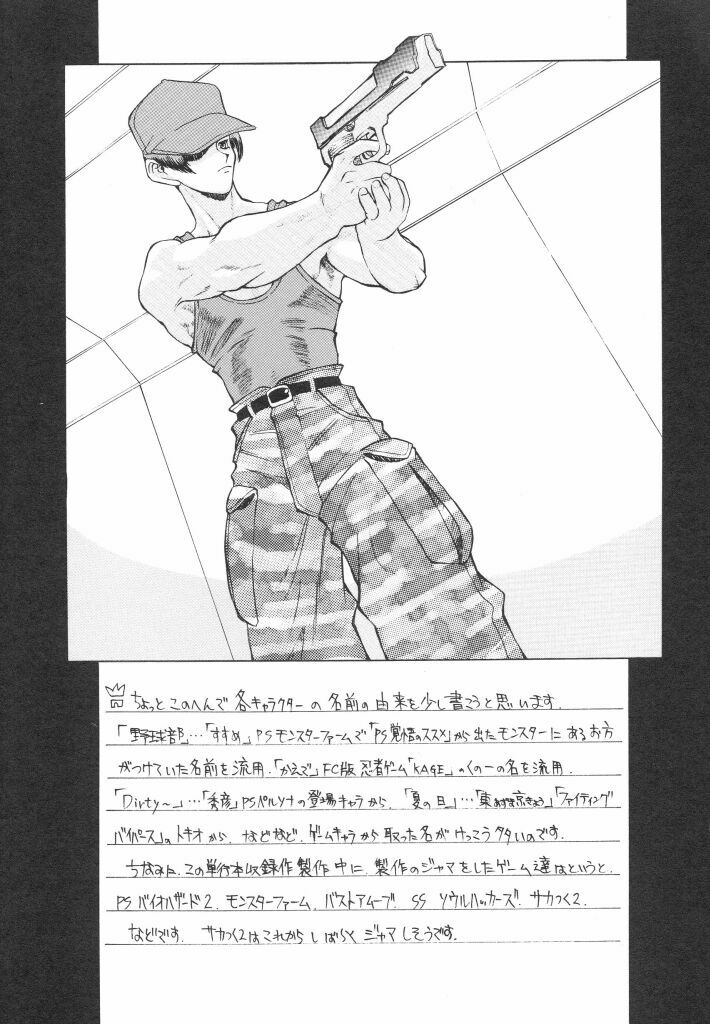 ちょっとこのへんで各キャラクターの名前の由来を少し書こうと思います.
「野球部」…「すすめ」PSモンスターファームで「PS覚悟のススメ」から出たモンスターにあるお方
がつけていた名前を流用.「かえで」FC版忍者ゲーム「KAGE」のくの一の名を流用.
「Dirty〜」…「秀彦」PSペルソナの登場キャラから、「夏の日」…「東 京」「ファイティング
バイパーズ」のトキオから、などなど、ゲームキャラから取った名がけっこう多いのです.
ちなみに、この単行本収録作製作中に、製作のジャマをしたゲーム達はというと、
PS バイオハザード2、モンスターファーム、バストアムーブ、SS ソウルハッカーズ、サカつく2、
などです. サカつく2はこれからしばらくジャマしそうです.